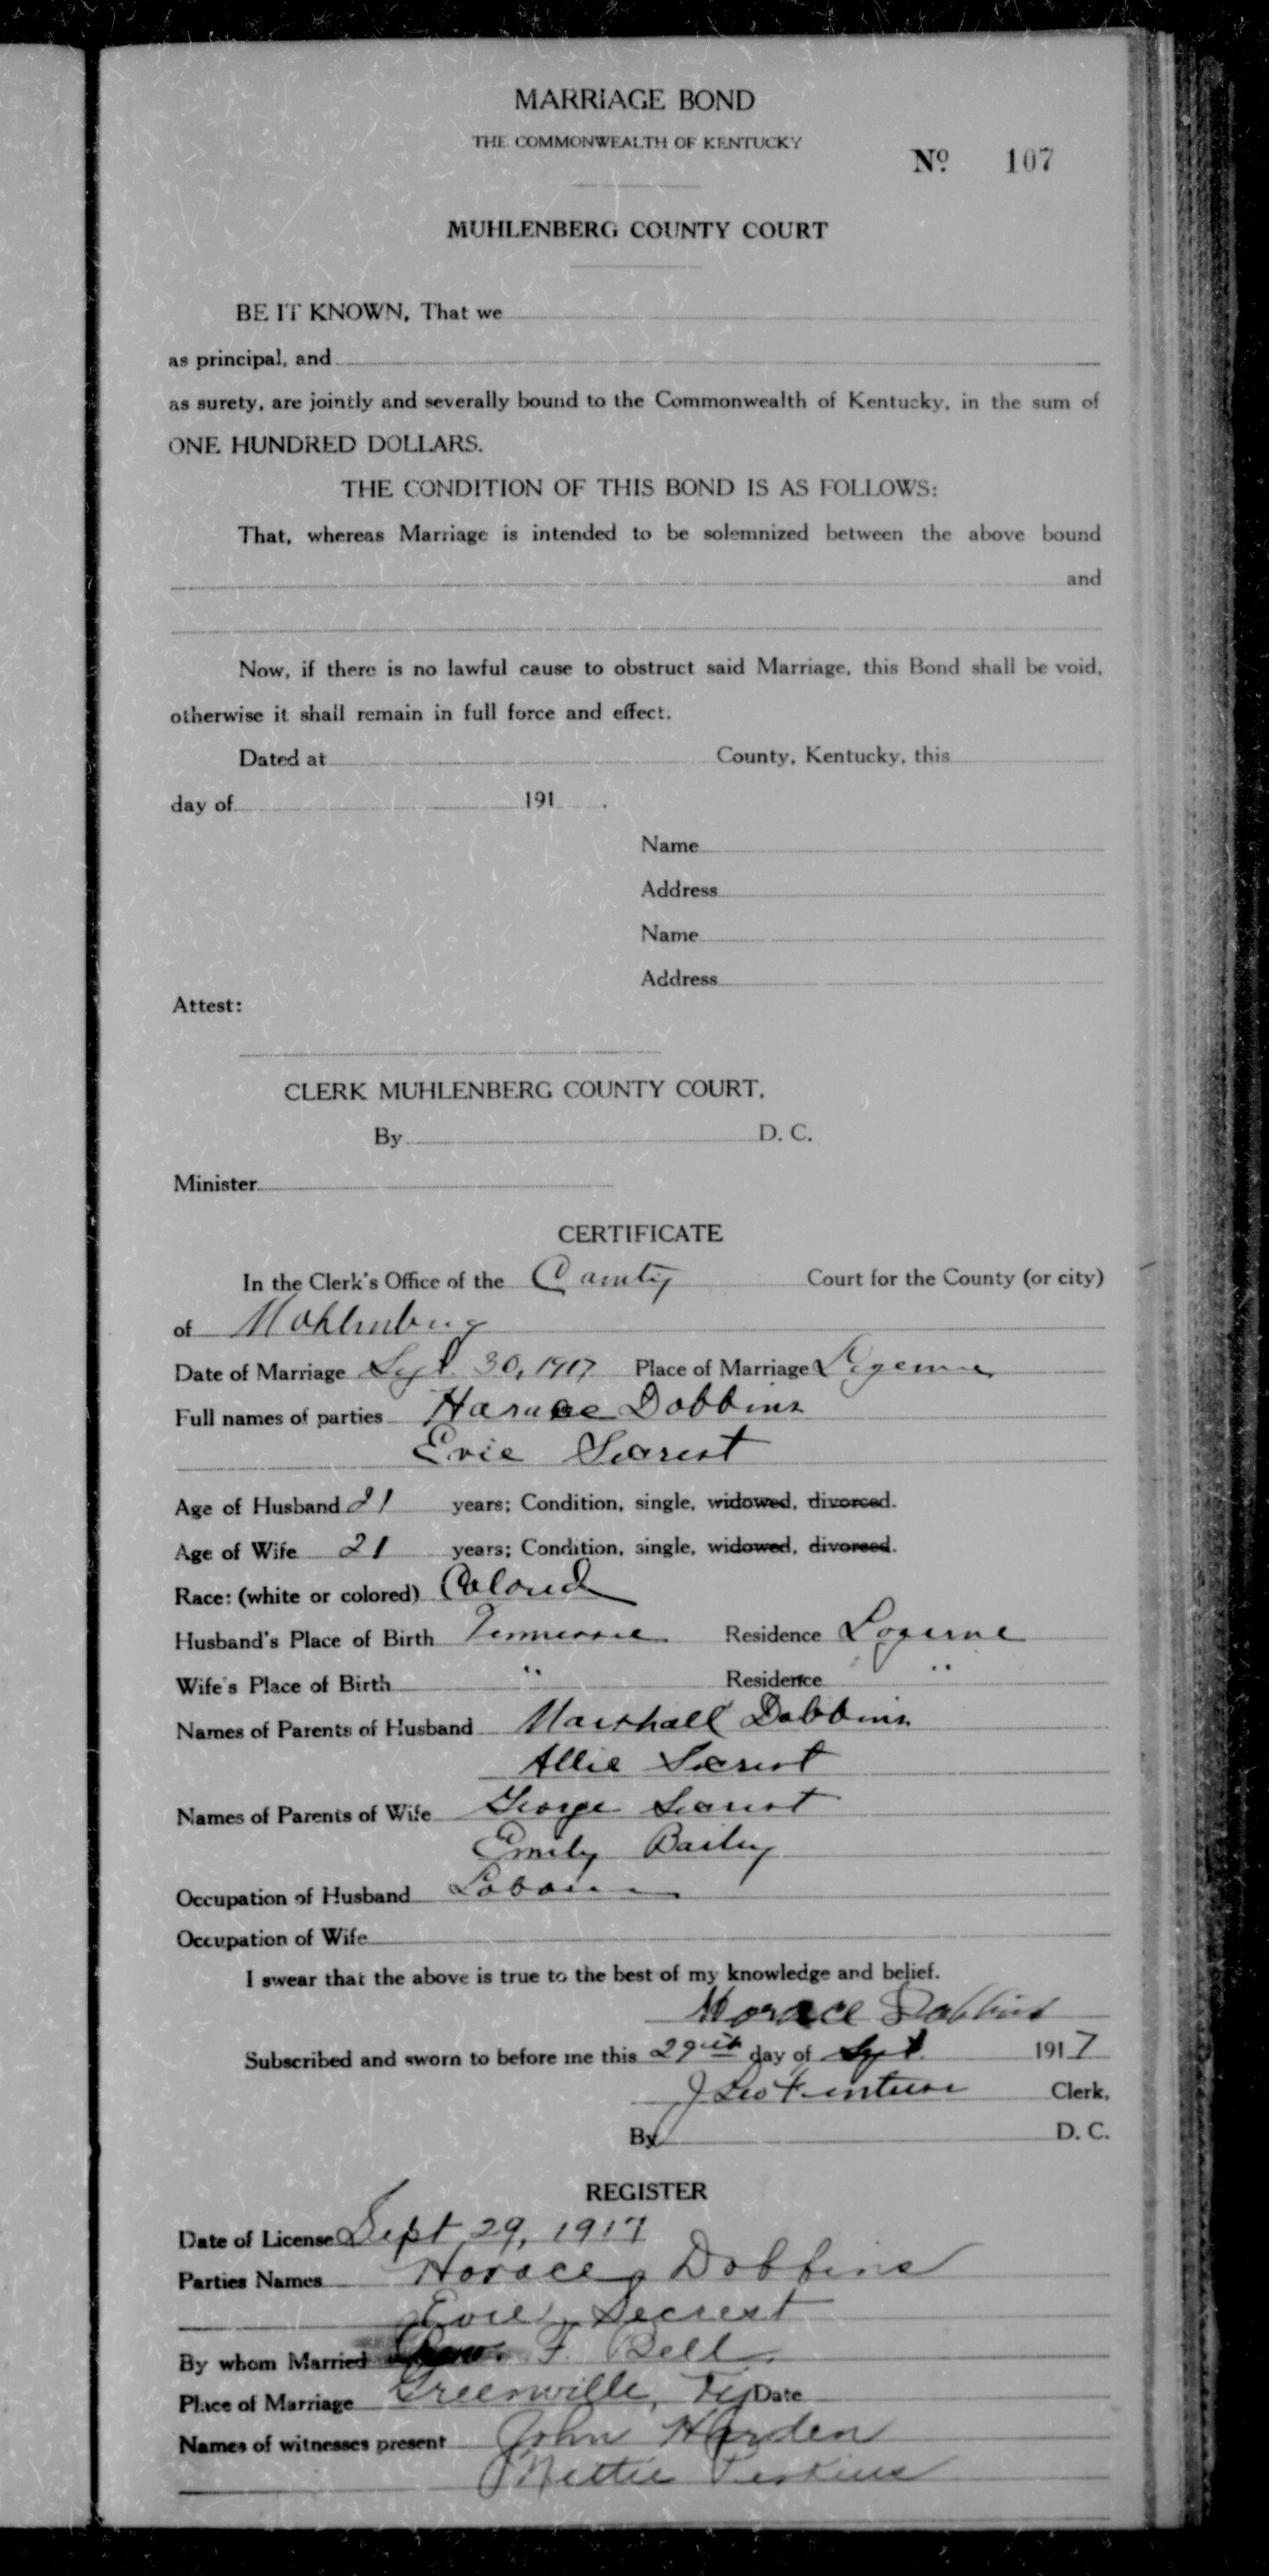 MARRIAGE BOND
THE COMMONWEALTH OF KENTUCKY
Nº 107
MUHLENBERG COUNTY COURT
BE IT KNOWN, That we
as principal, and
as surety, are jointly and severally bound to the Commonwealth of Kentucky, in the sum of
ONE HUNDRED DOLLARS.
THE CONDITION OF THIS BOND IS AS FOLLOWS:
That, whereas Marriage is intended to be solemnized between the above bound
and
Now, if there is no lawful cause to obstruct said Marriage, this Bond shall be void,
otherwise it shall remain in full force and effect.
Dated at County, Kentucky, this
day of 191 .
Name
Address
Name
Address
Attest:
CLERK MUHLENBERG COUNTY COURT,
By D. C.
Minister
CERTIFICATE
In the Clerk's Office of the County Court for the County (or city)
of Muhlenberg
Date of Marriage Sept. 30, 1917 Place of Marriage
Full names of parties Horace Dobbins
Evie Secrest
Age of Husband 21 years; Condition, single, widowed, divorced.
Age of Wife 21 years; Condition, single, widowed, divorced.
Race: (white or colored) Colored
Husband's Place of Birth Tennessee Residence Luzerne
Wife's Place of Birth " Residence "
Names of Parents of Husband Marshall Dobbins
Allie Secrest
Names of Parents of Wife George Secrest
Emily Bailey
Occupation of Husband Laborer
Occupation of Wife
I swear that the above is true to the best of my knowledge and belief.
Horace Dobbins
Subscribed and sworn to before me this 29th day of Sept. 1917
Clerk.
By D. C.
REGISTER
Date of License Sept 29, 1917
Parties Names Horace Dobbins
Evie Secrest
By whom Married F. Bell
Place of Marriage Greenville, Ky Date
Names of witnesses present John Harden
Mettie Perkins